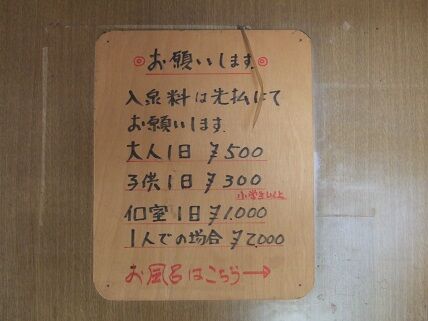 ◎お願いします◎
入泉料は先払にて
お願いします。
大人1日 ¥500
子供1日 ¥300
小学生以上
個室1日 ¥1,000
1人での場合 ¥2,000
お風呂はこちら→